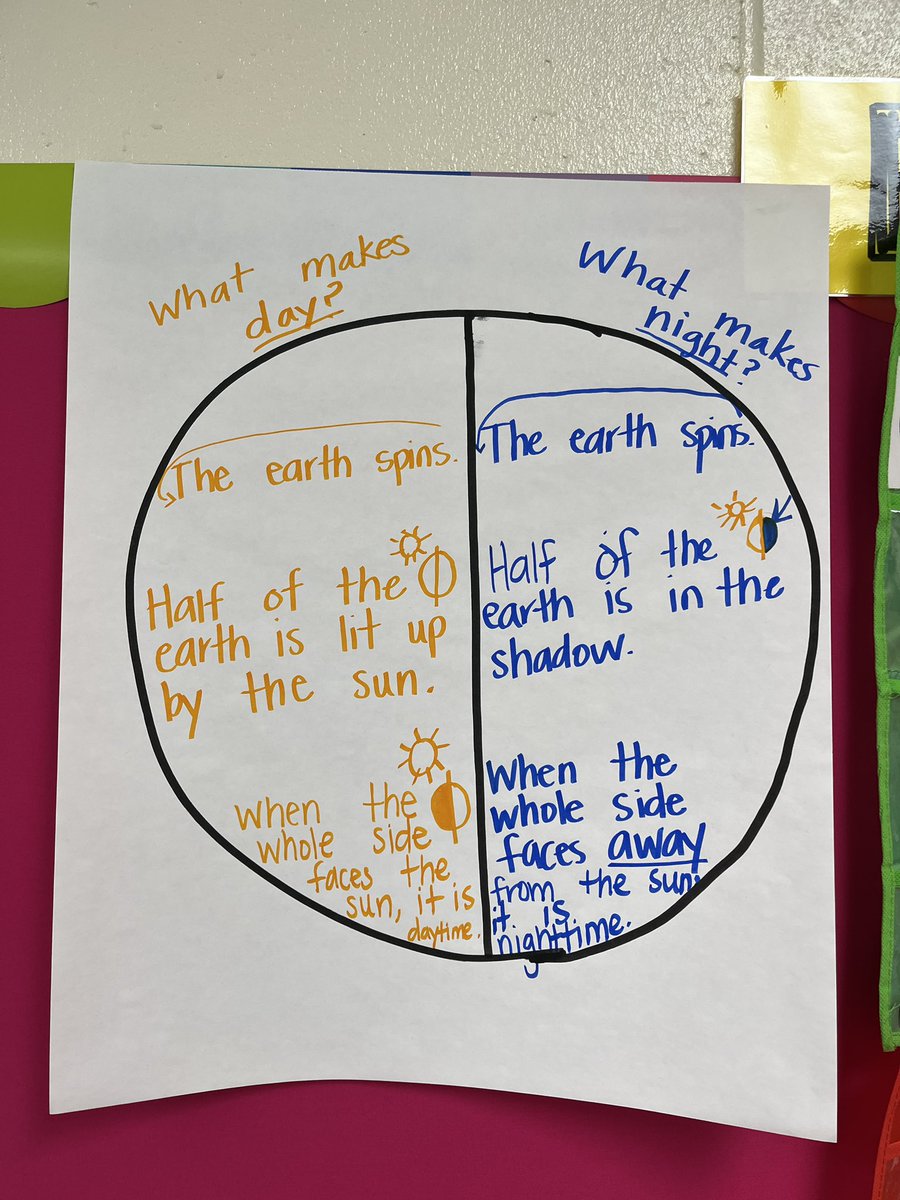 What makes
day?
The earth spins.
Half of the
earth is lit up
by the sun.
When the
whole side
faces the
sun, it is
daytime.
What makes
night?
The earth spins.
Half of the
earth is in the
shadow.
When the
whole side
faces away
from the sun,
it is
nighttime.